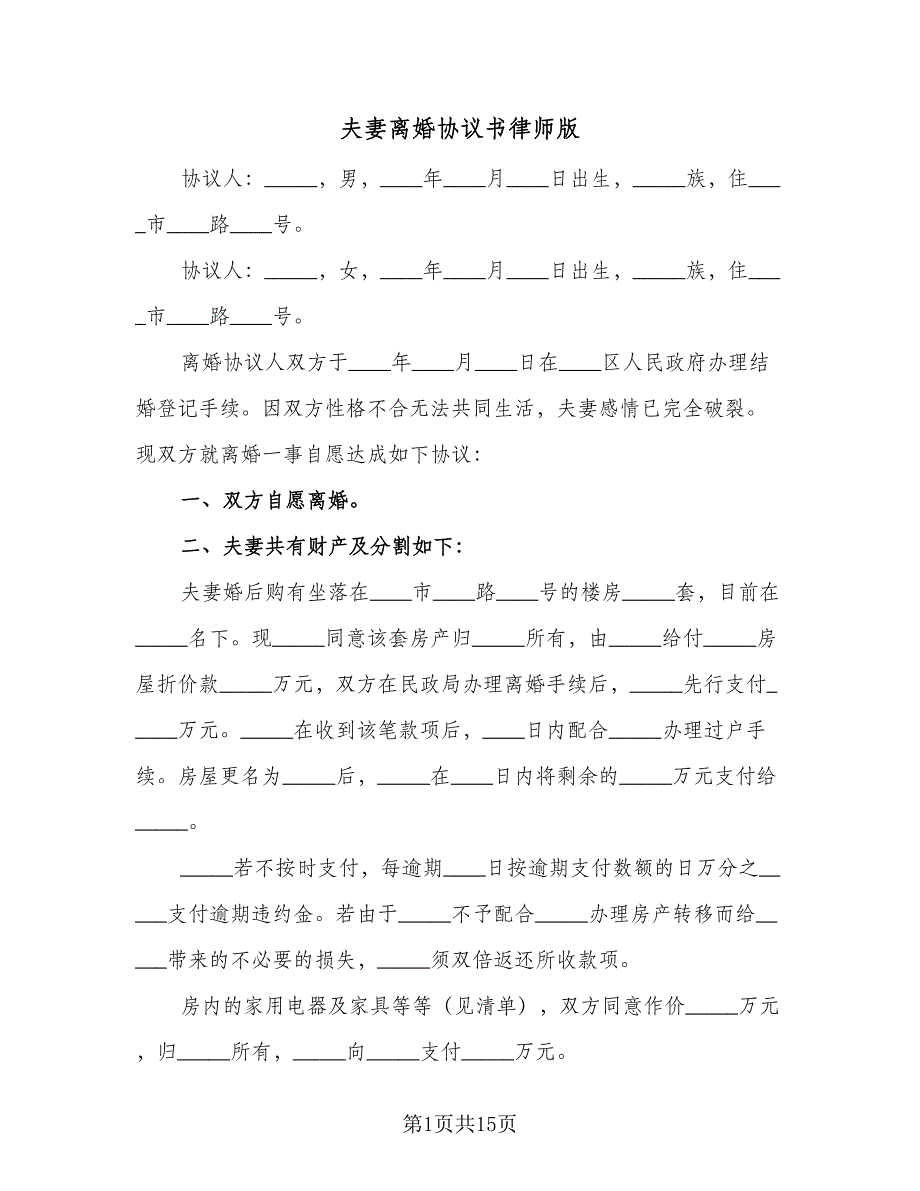 夫妻离婚协议书律师版
协议人：_____，男，____年____月____日出生，_____族，住___
_市____路____号。
协议人：_____，女，____年____月____日出生，_____族，住___
_市____路____号。
离婚协议人双方于____年____月____日在____区人民政府办理结
婚登记手续。因双方性格不合无法共同生活，夫妻感情已完全破裂。
现双方就离婚一事自愿达成如下协议：
一、双方自愿离婚。
二、夫妻共有财产及分割如下：
夫妻婚后购有坐落在____市____路____号的楼房_____套，目前在
_____名下。现_____同意该套房产归_____所有，由_____给付_____房
屋折价款_____万元，双方在民政局办理离婚手续后，_____先行支付_
____万元。_____在收到该笔款项后，____日内配合_____办理过户手
续。房屋更名为_____后，_____在____日内将剩余的_____万元支付给
_____。
_____若不按时支付，每逾期____日按逾期支付数额的日万分之__
___支付逾期违约金。若由于_____不予配合_____办理房产转移而给__
___带来的不必要的损失，_____须双倍返还所收款项。
房内的家用电器及家具等等（见清单），双方同意作价_____万元
，归_____所有，_____向_____支付_____万元。
第1页共15页